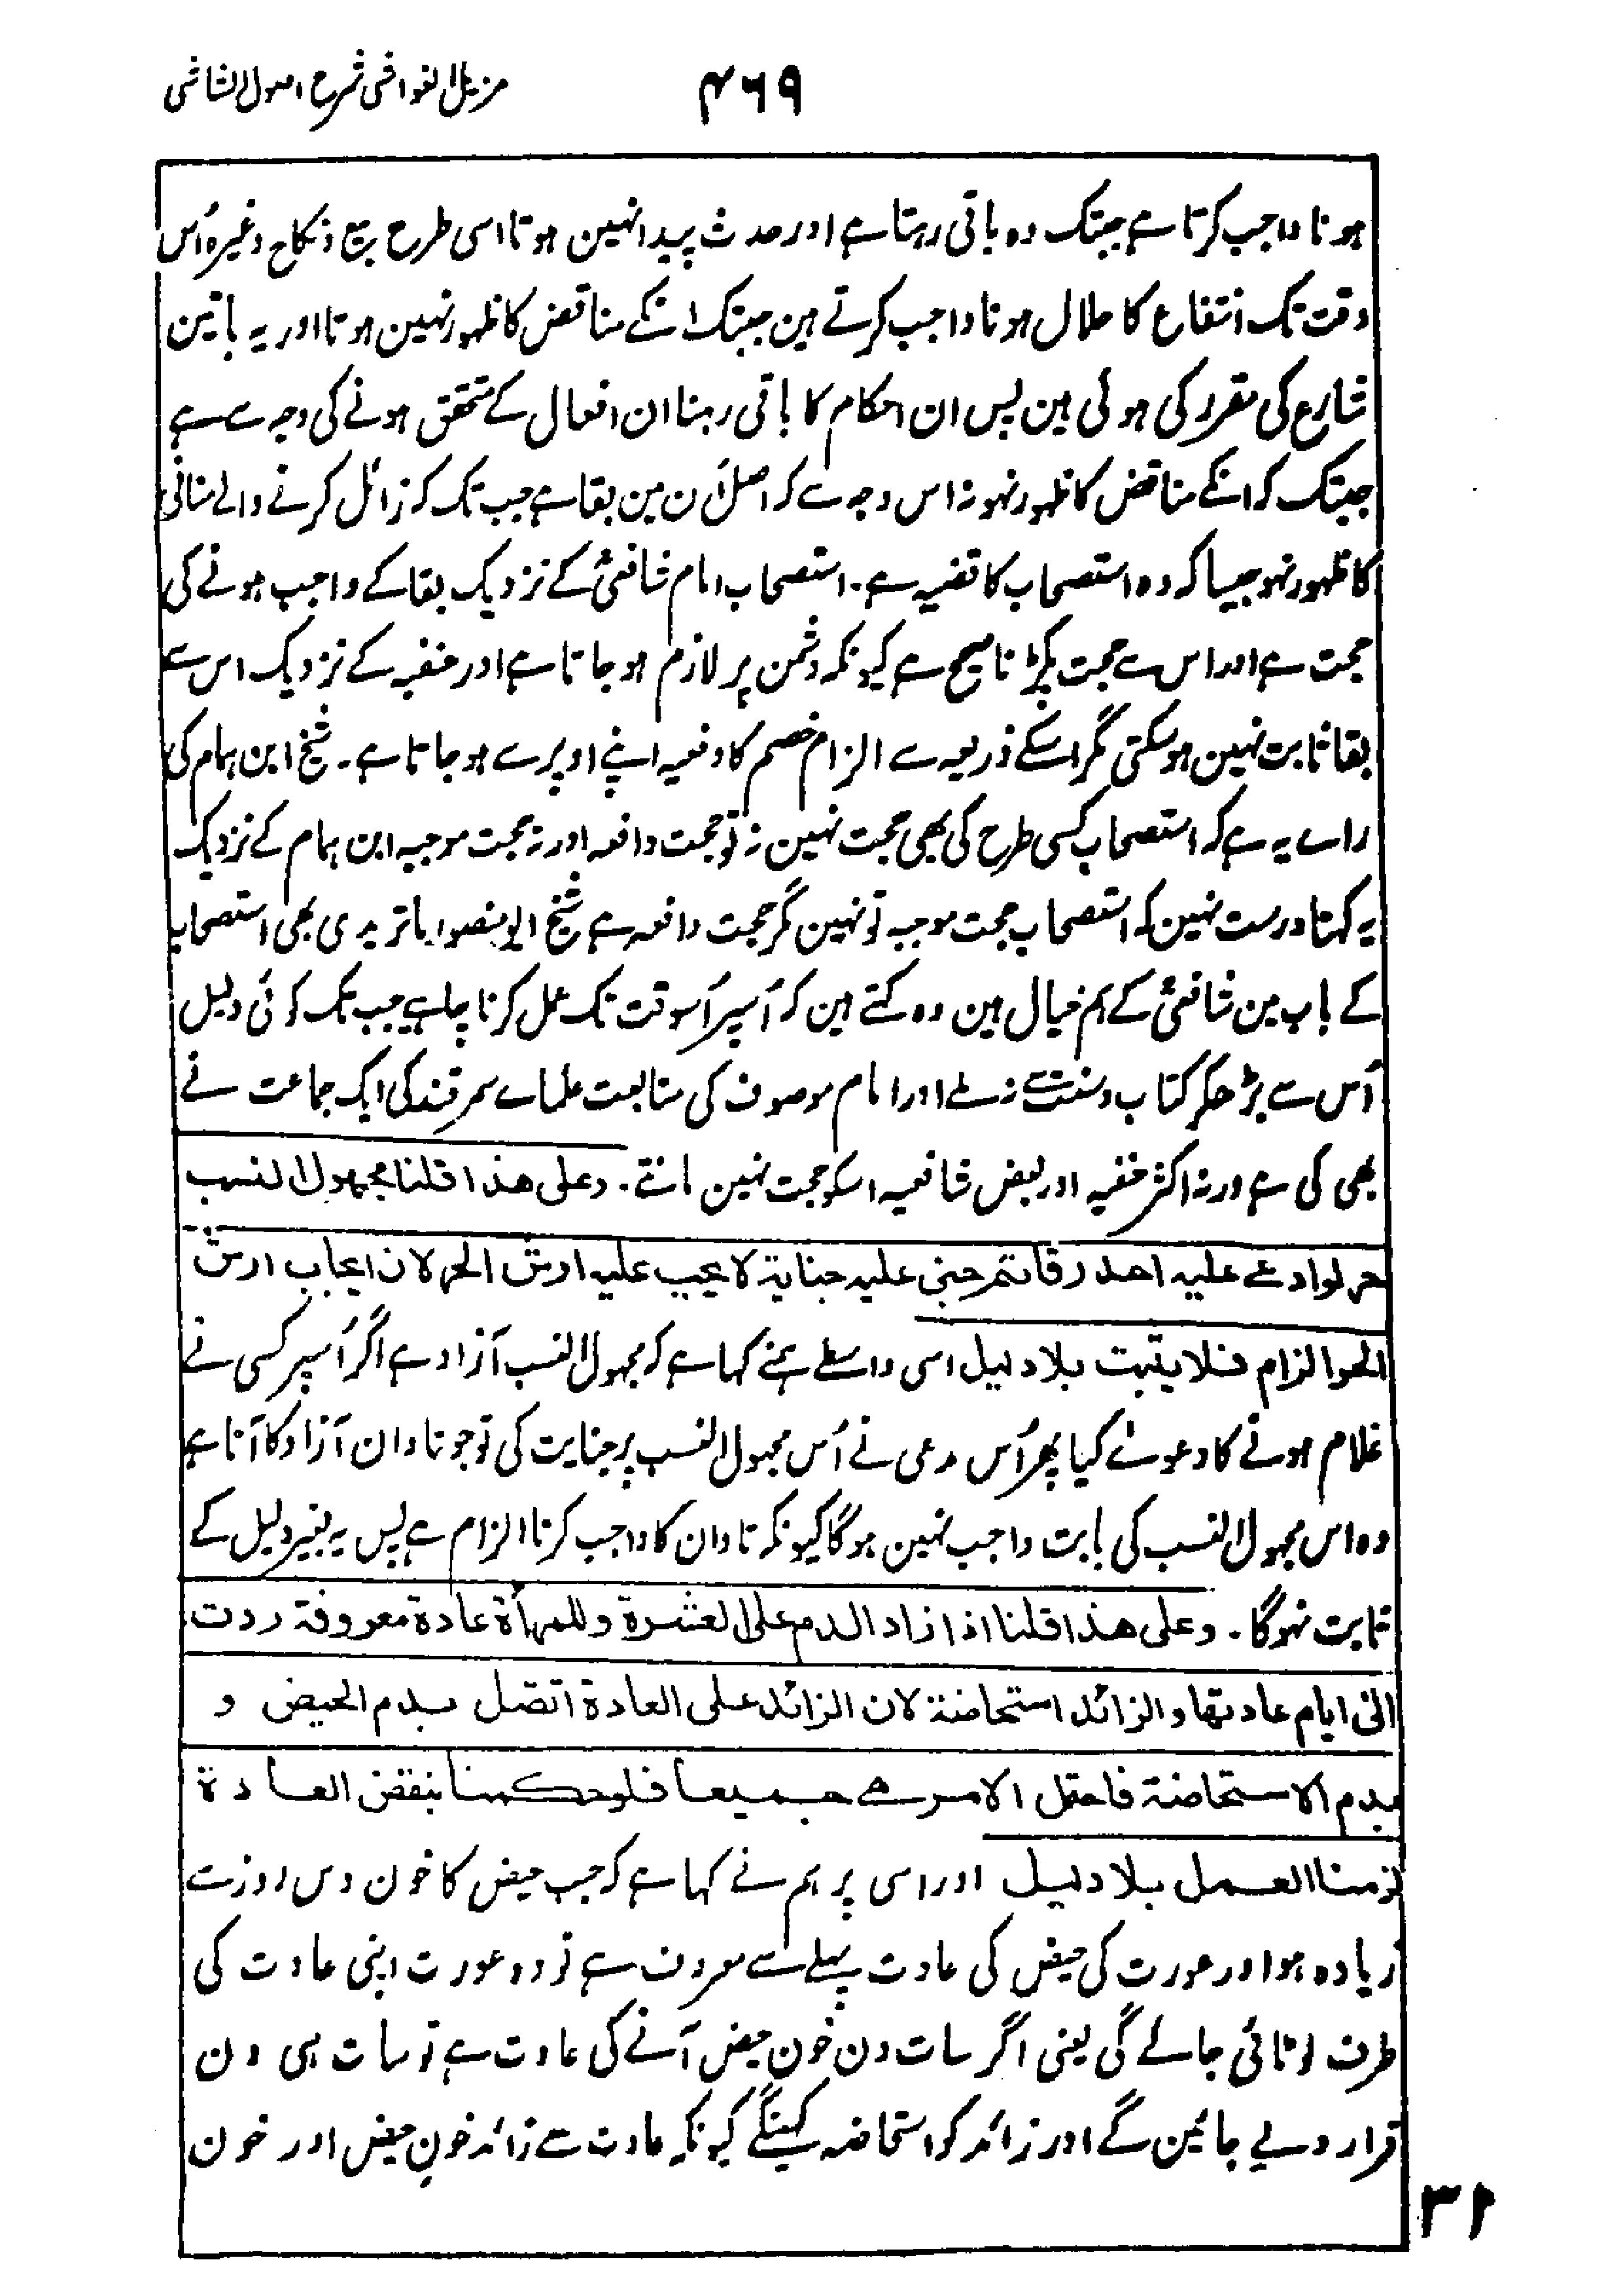 مزیل الغواشی شرح اصول الشاشی
۴۶۹
ہونا واجب کرتا ہے جبتک وہ باقی رہتا ہے اور حدث پیدا نہین ہوتا اسی طرح بیع و نکاح وغیرہ اُس
وقت تک انتفاع کا حلال ہونا واجب کرتے ہین جبتک انکے مناقض کا ظہور نہین ہوتا اور یہ باتین
شارع کی مقرر کی ہوئی ہین پس ان احکام کا باقی رہنا ان افعال کے متحقق ہونے کی وجہ سے ہے
جبتک کہ انکے مناقض کا ظہور نہو نہ اس وجہ سے کہ اصل اُن مین بقا ہے جب تک کہ زائل کرنے والے منافی
کا ظہور نہو جیسا کہ وہ استصحاب کا قضیہ ہے۔ استصحاب امام شافعیؒ کے نزدیک بقا کے واجب ہونے کی
حجت ہے اور اس سے حجت پکڑنا صحیح ہے کیونکہ دشمن پر لازم ہو جاتا ہے اور حنفیہ کے نزدیک اس سے
بقا ثابت نہین ہوسکتی مگر اسکے ذریعہ سے الزام خصم کا دفعیہ اپنے اوپر سے ہو جاتا ہے۔ شیخ ابن ہمام کی
راے یہ ہے کہ استصحاب کسی طرح کی بھی حجت نہین نہ تو حجت دافعہ اور نہ حجت موجبہ ابن ہمام کے نزدیک
یہ کہنا درست نہین کہ استصحاب حجت موجبہ تو نہین مگر حجت دافعہ ہے شیخ ابو منصور ماتریدی بھی استصحاب
کے باب مین شافعیؒ کے ہم خیال ہین وہ کہتے ہین کہ اُسپر اُسوقت تک عمل کرنا چاہیے جب تک کوئی دلیل
اُس سے بڑھکر کتاب و سنت سے نہ ملے اور امام موصوف کی متابعت علماے سمرقند کی ایک جماعت نے
بھی کی ہے ورنہ اکثر حنفیہ اور بعض شافعیہ اسکو حجت نہین مانتے۔ وعلی ھذا قلنا مجھول النسب
حر لو ادعے علیہ احد رقا ثم جنی علیہ جنایۃ لا یجب علیہ ارش الحر لان ایجاب ارش
الحر الزام فلا یثبت بلا دلیل اسی واسطے ہمنے کہا ہے کہ مجہول النسب آزاد ہے اگر اُسپر کسی نے
غلام ہونے کا دعوےٰ کیا پھر اُس مدعی نے اُس مجہول النسب پر جنایت کی تو جو تاوان آزاد کا آتا ہے
وہ اس مجہول النسب کی بابت واجب نہین ہوگا کیونکہ تاوان کا واجب کرنا الزام ہے پس یہ بغیر دلیل کے
ثابت نہوگا۔ وعلی ھذا قلنا اذا زاد الدم علی العشرة وللمرأة عادة معروفة ردت
الی ایام عادتھا والزائد استحاضة لان الزائد علی العادة اتصل بدم الحیض و
بدم الاستحاضة فاحتمل الامرین جمیعا فلو حکمنا بنقض العادة
لزمنا العمل بلا دلیل اور اسی پر ہم نے کہا ہے کہ جب حیض کا خون دس روز سے
زیادہ ہوا اور عورت کی حیض کی عادت پہلے سے معروف ہے تو وہ عورت اپنی عادت کی
طرف لوٹائی جائے گی یعنی اگر سات دن خون حیض آنے کی عادت ہے تو سات ہی دن
قرار دیے جائین گے اور زائد کو استحاضہ کہینگے کیونکہ عادت سے زائد خونِ حیض اور خون
۳۱